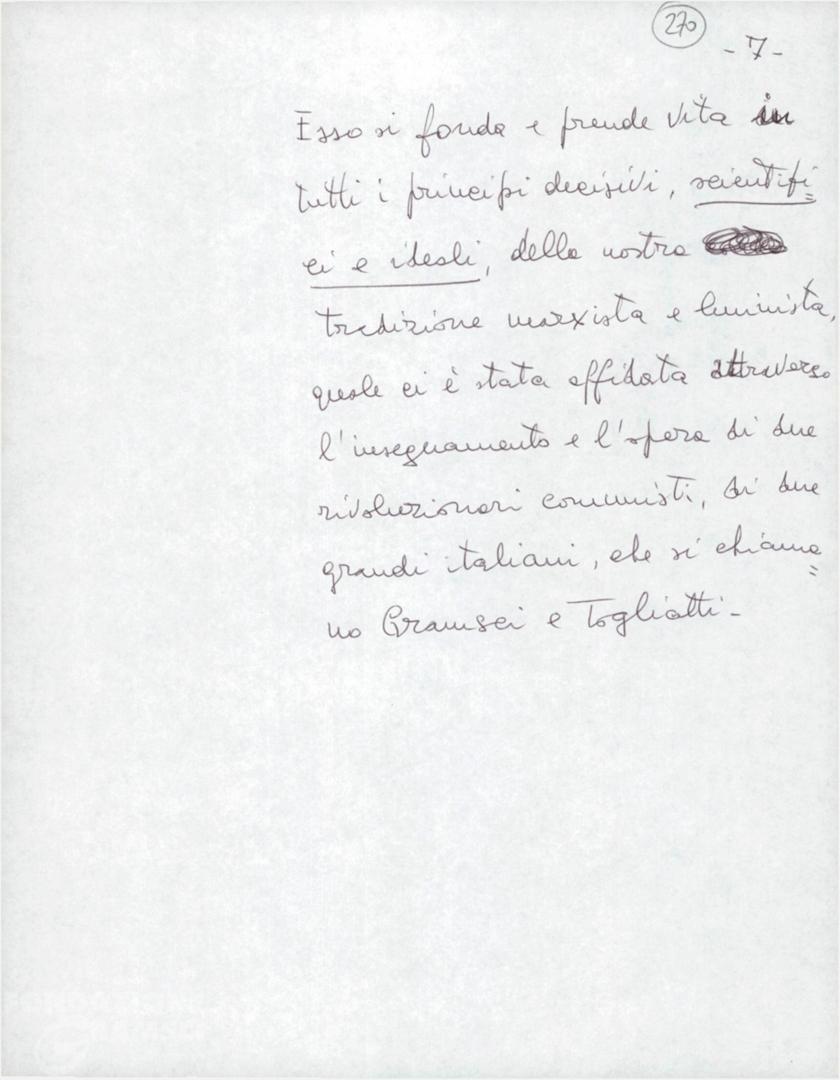 270
- 7 -
Esso si fonda e prende vita in
tutti i principi decisivi, scientifi=
ci e ideali, della nostra
tradizione marxista e leninista,
quale ci è stata affidata attraverso
l'insegnamento e l'opera di due
rivoluzionari comunisti, di due
grandi italiani, che si chiama=
no Gramsci e Togliatti -